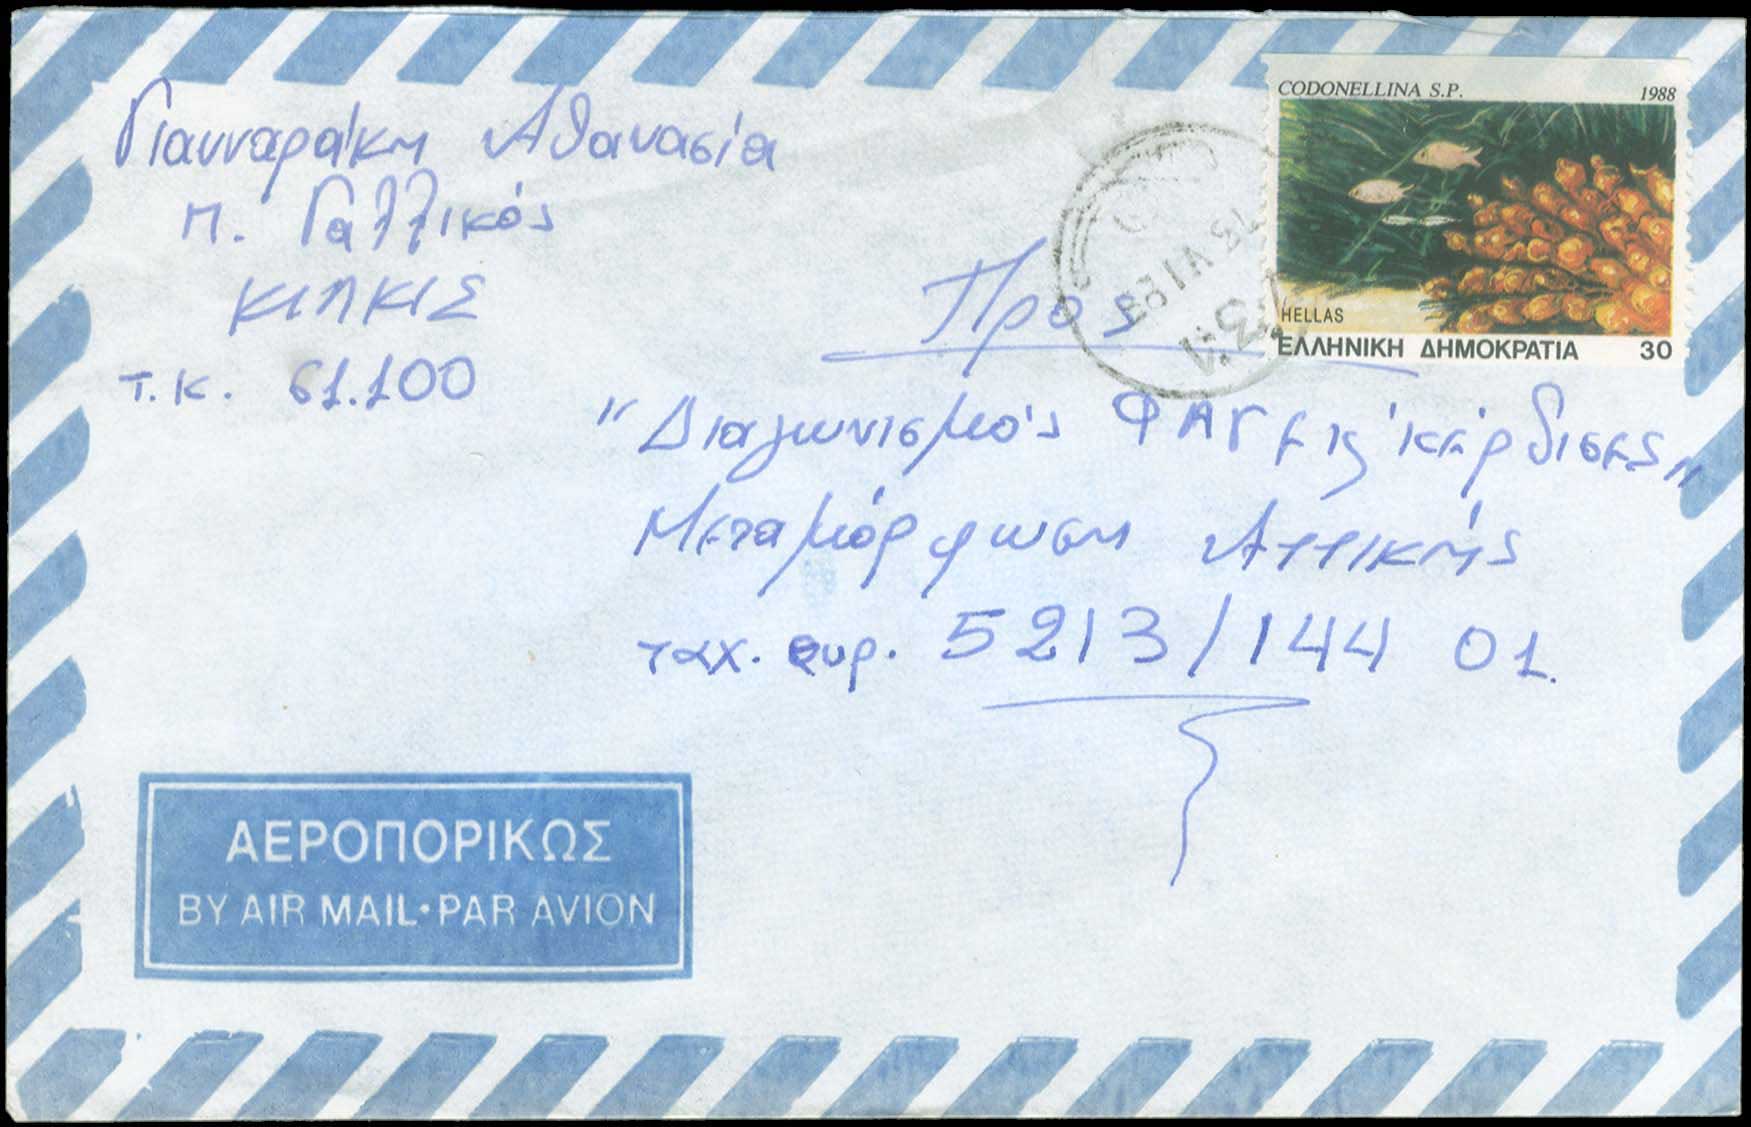 Γιανναράκη Αθανασία
Π. Γαλλικός
ΚΙΛΚΙΣ
Τ.Κ. 61.100
CODONELLINA S.P. 1988
HELLAS
ΕΛΛΗΝΙΚΗ ΔΗΜΟΚΡΑΤΙΑ 30
Προς
"Διαγωνισμός ΦΑΓε κέρδισες"
Μεταμόρφωση Αττικής
ταχ. θυρ. 5213/144 01.
ΑΕΡΟΠΟΡΙΚΩΣ
BY AIR MAIL·PAR AVION